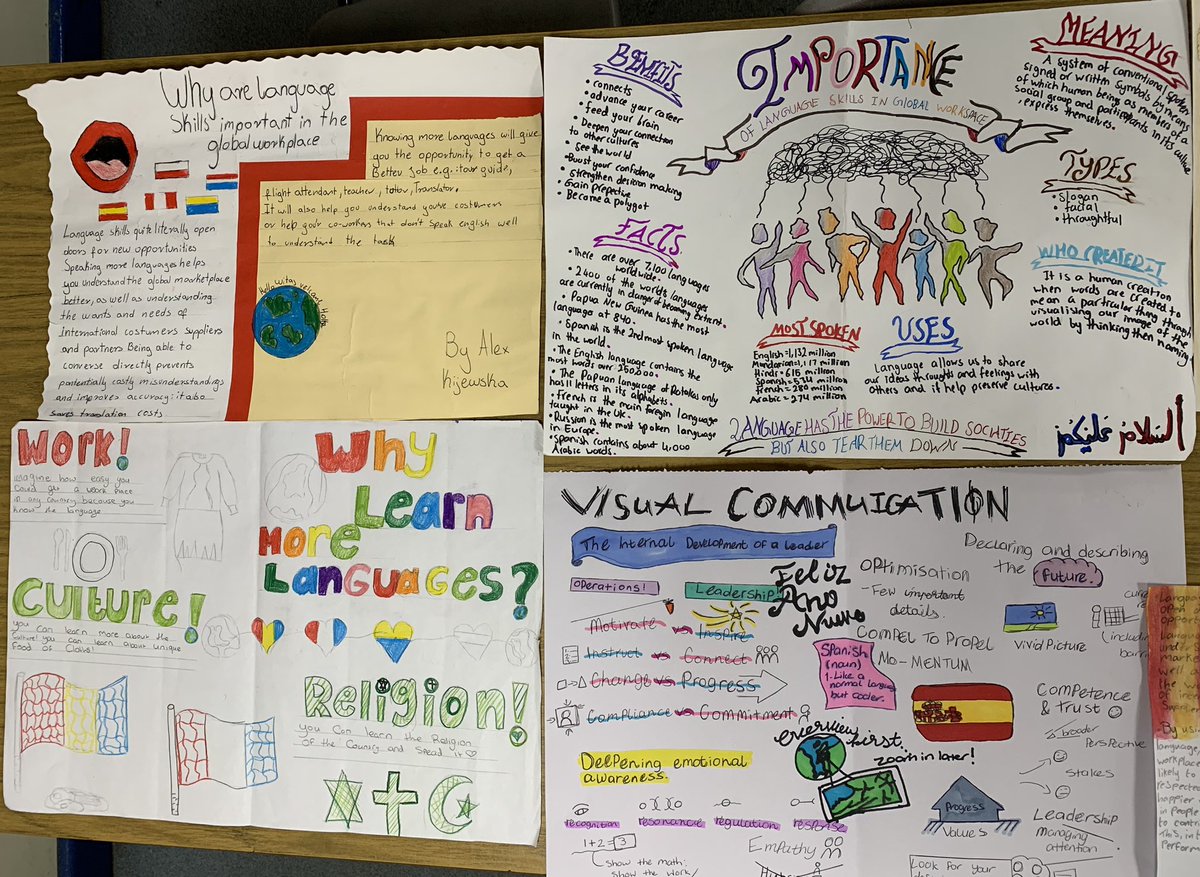 Why are Language
Skills important in the
global workplace
Language skills quite literally open
doors for new opportunities
Speaking more languages helps
you understand the global marketplace
better, as well as understanding
the wants and needs of
International costumers suppliers
and partners Being able to
converse directly prevents
potentially costly misunderstandings
and improves accuracy: it also
saves translation costs
Knowing more languages will give
you the opportunity to get a
Better Job e.g.: tour guide,
flight attendant, teacher, Translator.
It will also help you understand your costumers
or help your co-workers that don't speak english well
to understand the task
Hello Witaj
Hola
By Alex
Kijewska
IMPORTANE
OF LANGUAGE SKILLS IN GLOBAL WORKSPACE
BENEFITS
• connects
• advance your career
• feed your brain
• Deepen your connection
to other cultures
• see the world
• Boost your confidence
• strengthen decision making
• Gain prepective
• Become a polygot
FACTS
• There are over 7,100 languages
worldwide.
• 2400 of the world's languages
are currently in danger of becoming extent.
• Papua New Guinea has the most
language at 840.
• Spanish is the 2nd most spoken language
in the world.
• The English language contains the
most words over 250000.
• The Papuan language of Rotokas only
has 11 letters in its alphabets.
• French is the main foregin language
taught in the UK.
• Russian is the most spoken language
in Europe.
• Spanish contains about 4,000
Arabic words.
MOST SPOKEN
English = 1,132 million
Mandarian = 1,117 million
Hindi = 615 million
Spanish = 534 million
French = 280 million
Arabic = 274 million
USES
Language allows us to share
our ideas thoughts and feelings with
others and it help preserve cultures.
MEANING
A system of conventional spoken,
signed or written symbols by means
of which human being as members of a
social group and participants in its culture
, express themselves.
TYPES
• slogan
• facial
• throughtful
WHO CREATED IT
It is a human creation
when words are created to
mean a particular thing through
visualising our image of the
world by thinking then naming
LANGUAGE HAS THE POWER TO BUILD SOCITIES
BUT ALSO TEAR THEM DOWN
السلام عليكم
WORK!
imagine how easy you
could get a work place
in any country because you
know the language
CULTURE!
you can learn more about the
culture! you can learn about unique
Food of Cloths!
Why
Learn
More
Languages?
Religion!
you can learn the Religion
of the Country and Spead it
VISUAL COMMUICATION
The Internal Development of a leader
Operations!
Leadership
Motivate vs Inspire
Instruct vs Connect
Change vs Progress
Compliance vs Commitment
Deepening emotional
awareness.
recognition
resonance
regulation
response
1+2=3
show the math:
show the work/
Empathy
Feliz
Ano
Nuevo
OPtimisation
- Few important
details.
Compel to Propel
Mo-mentum
Spanish
(noun)
1. Like a
normal language
but cooler.
overview first.
zoom in later!
Declaring and describing
the future.
Vivid Picture
(including
Competence
& trust
broader
Perspective
Stakes
Progress
Values
Leadership
managing
attention
Look for your